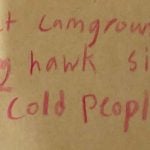 t camgroun
g hawk si
cold peopl